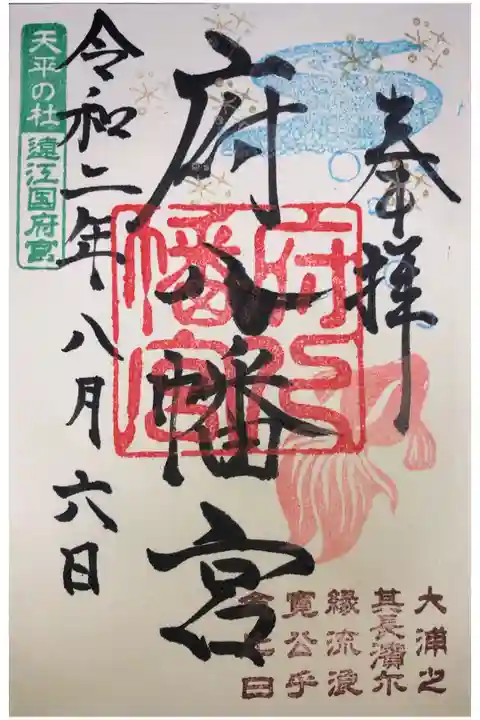 奉拝
府八幡宮
府八幡宮
令和二年八月六日
天平の杜
遠江国府宮
大浦之
其長濱尓
縁流浪
寛公乎
念比日